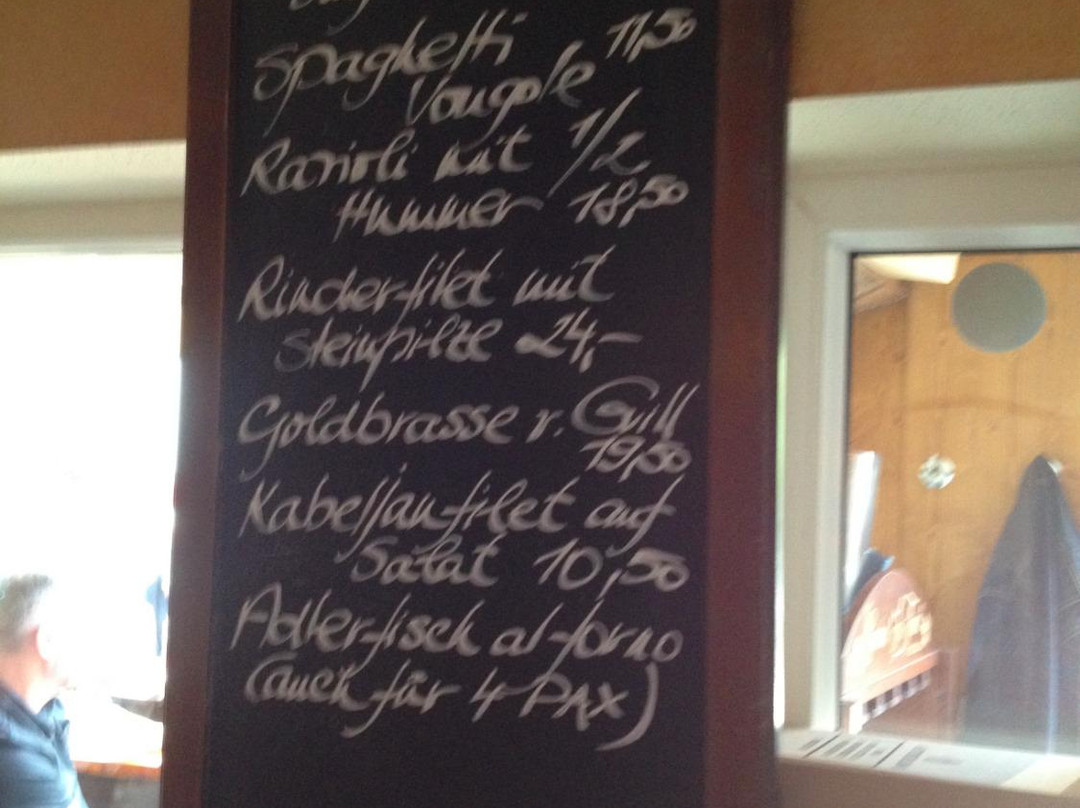 Spaghetti 11,50
Vongole
Ravioli mit 1/2
Hummer 18,50
Rinderfilet mit
Steinpilze 24,-
Goldbrasse v. Grill
19,50
Kabeljaufilet auf
Salat 10,50
Adlerfisch al forno
(auch für 4 PAX)